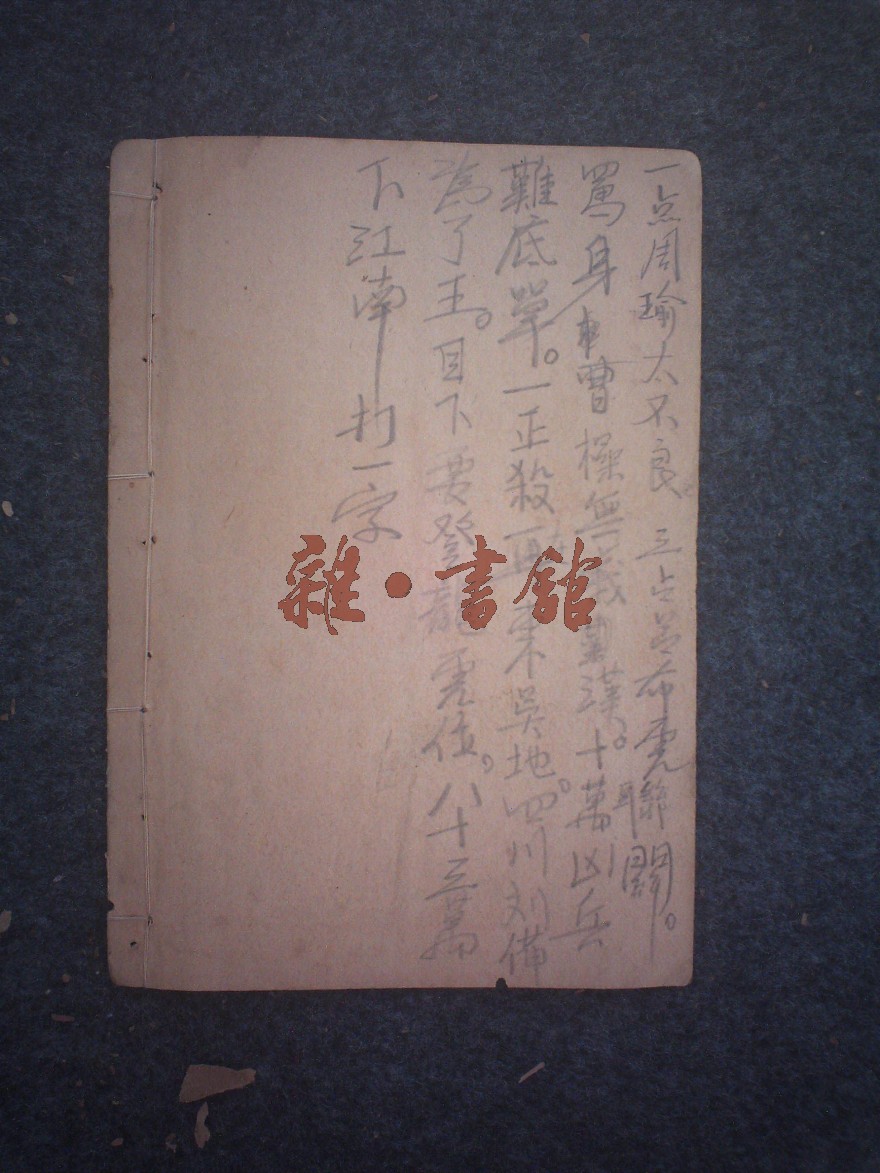 一点周瑜太不良。三占吕布虎聯關。
罵身曹操無義漢。十萬凶兵
難底單。一正殺東吳地。四川刘備
為了王。目下要登龍虎位。八十三萬
下江南 打一字
雜·書館